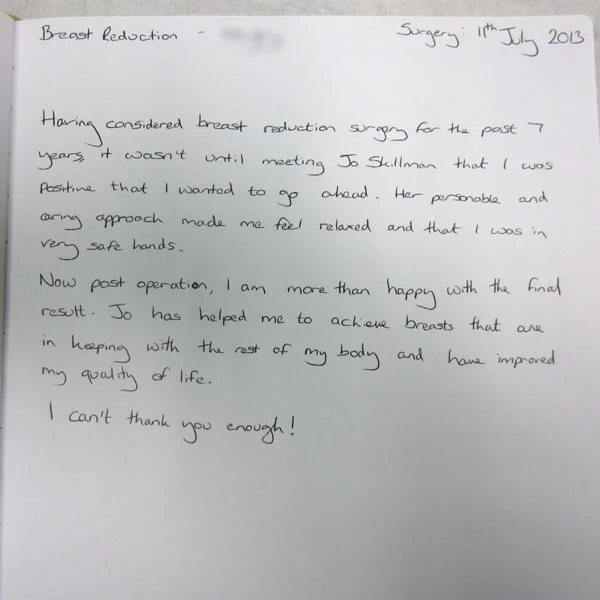 Breast Reduction -
Surgery: 11th July 2013
Having considered breast reduction surgery for the past 7
years, it wasn't until meeting Jo Skillman that I was
positive that I wanted to go ahead. Her personable and
caring approach made me feel relaxed and that I was in
very safe hands.
Now post operation, I am more than happy with the final
result. Jo has helped me to achieve breasts that are
in keeping with the rest of my body and have improved
my quality of life.
I can't thank you enough!